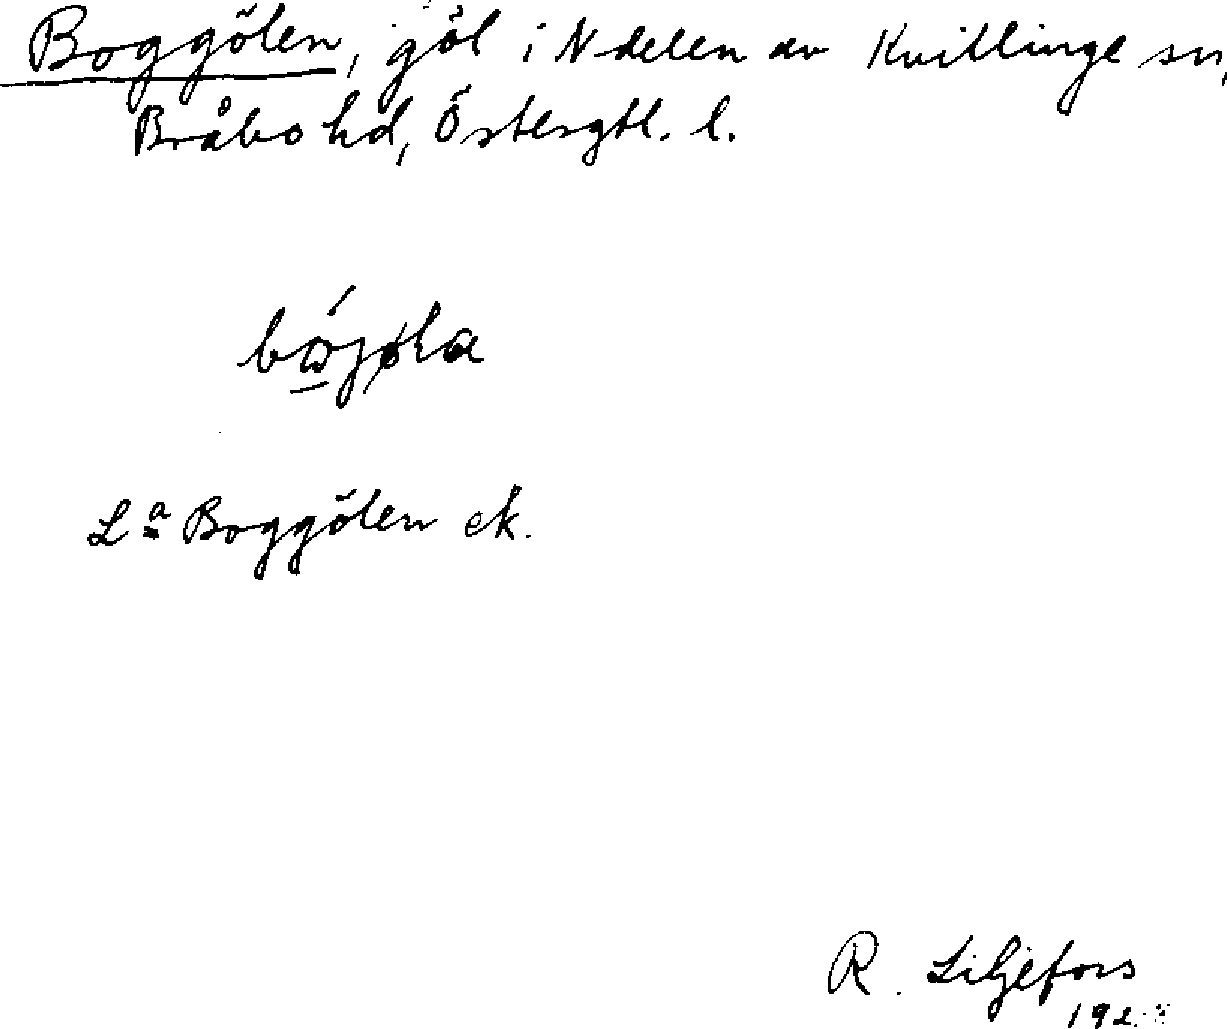 Boggölen, göl i N delen av Kvillinge sn,
Bråbo hd, Östergtl. l.
Lª Boggölen ek.
R. Liljefors